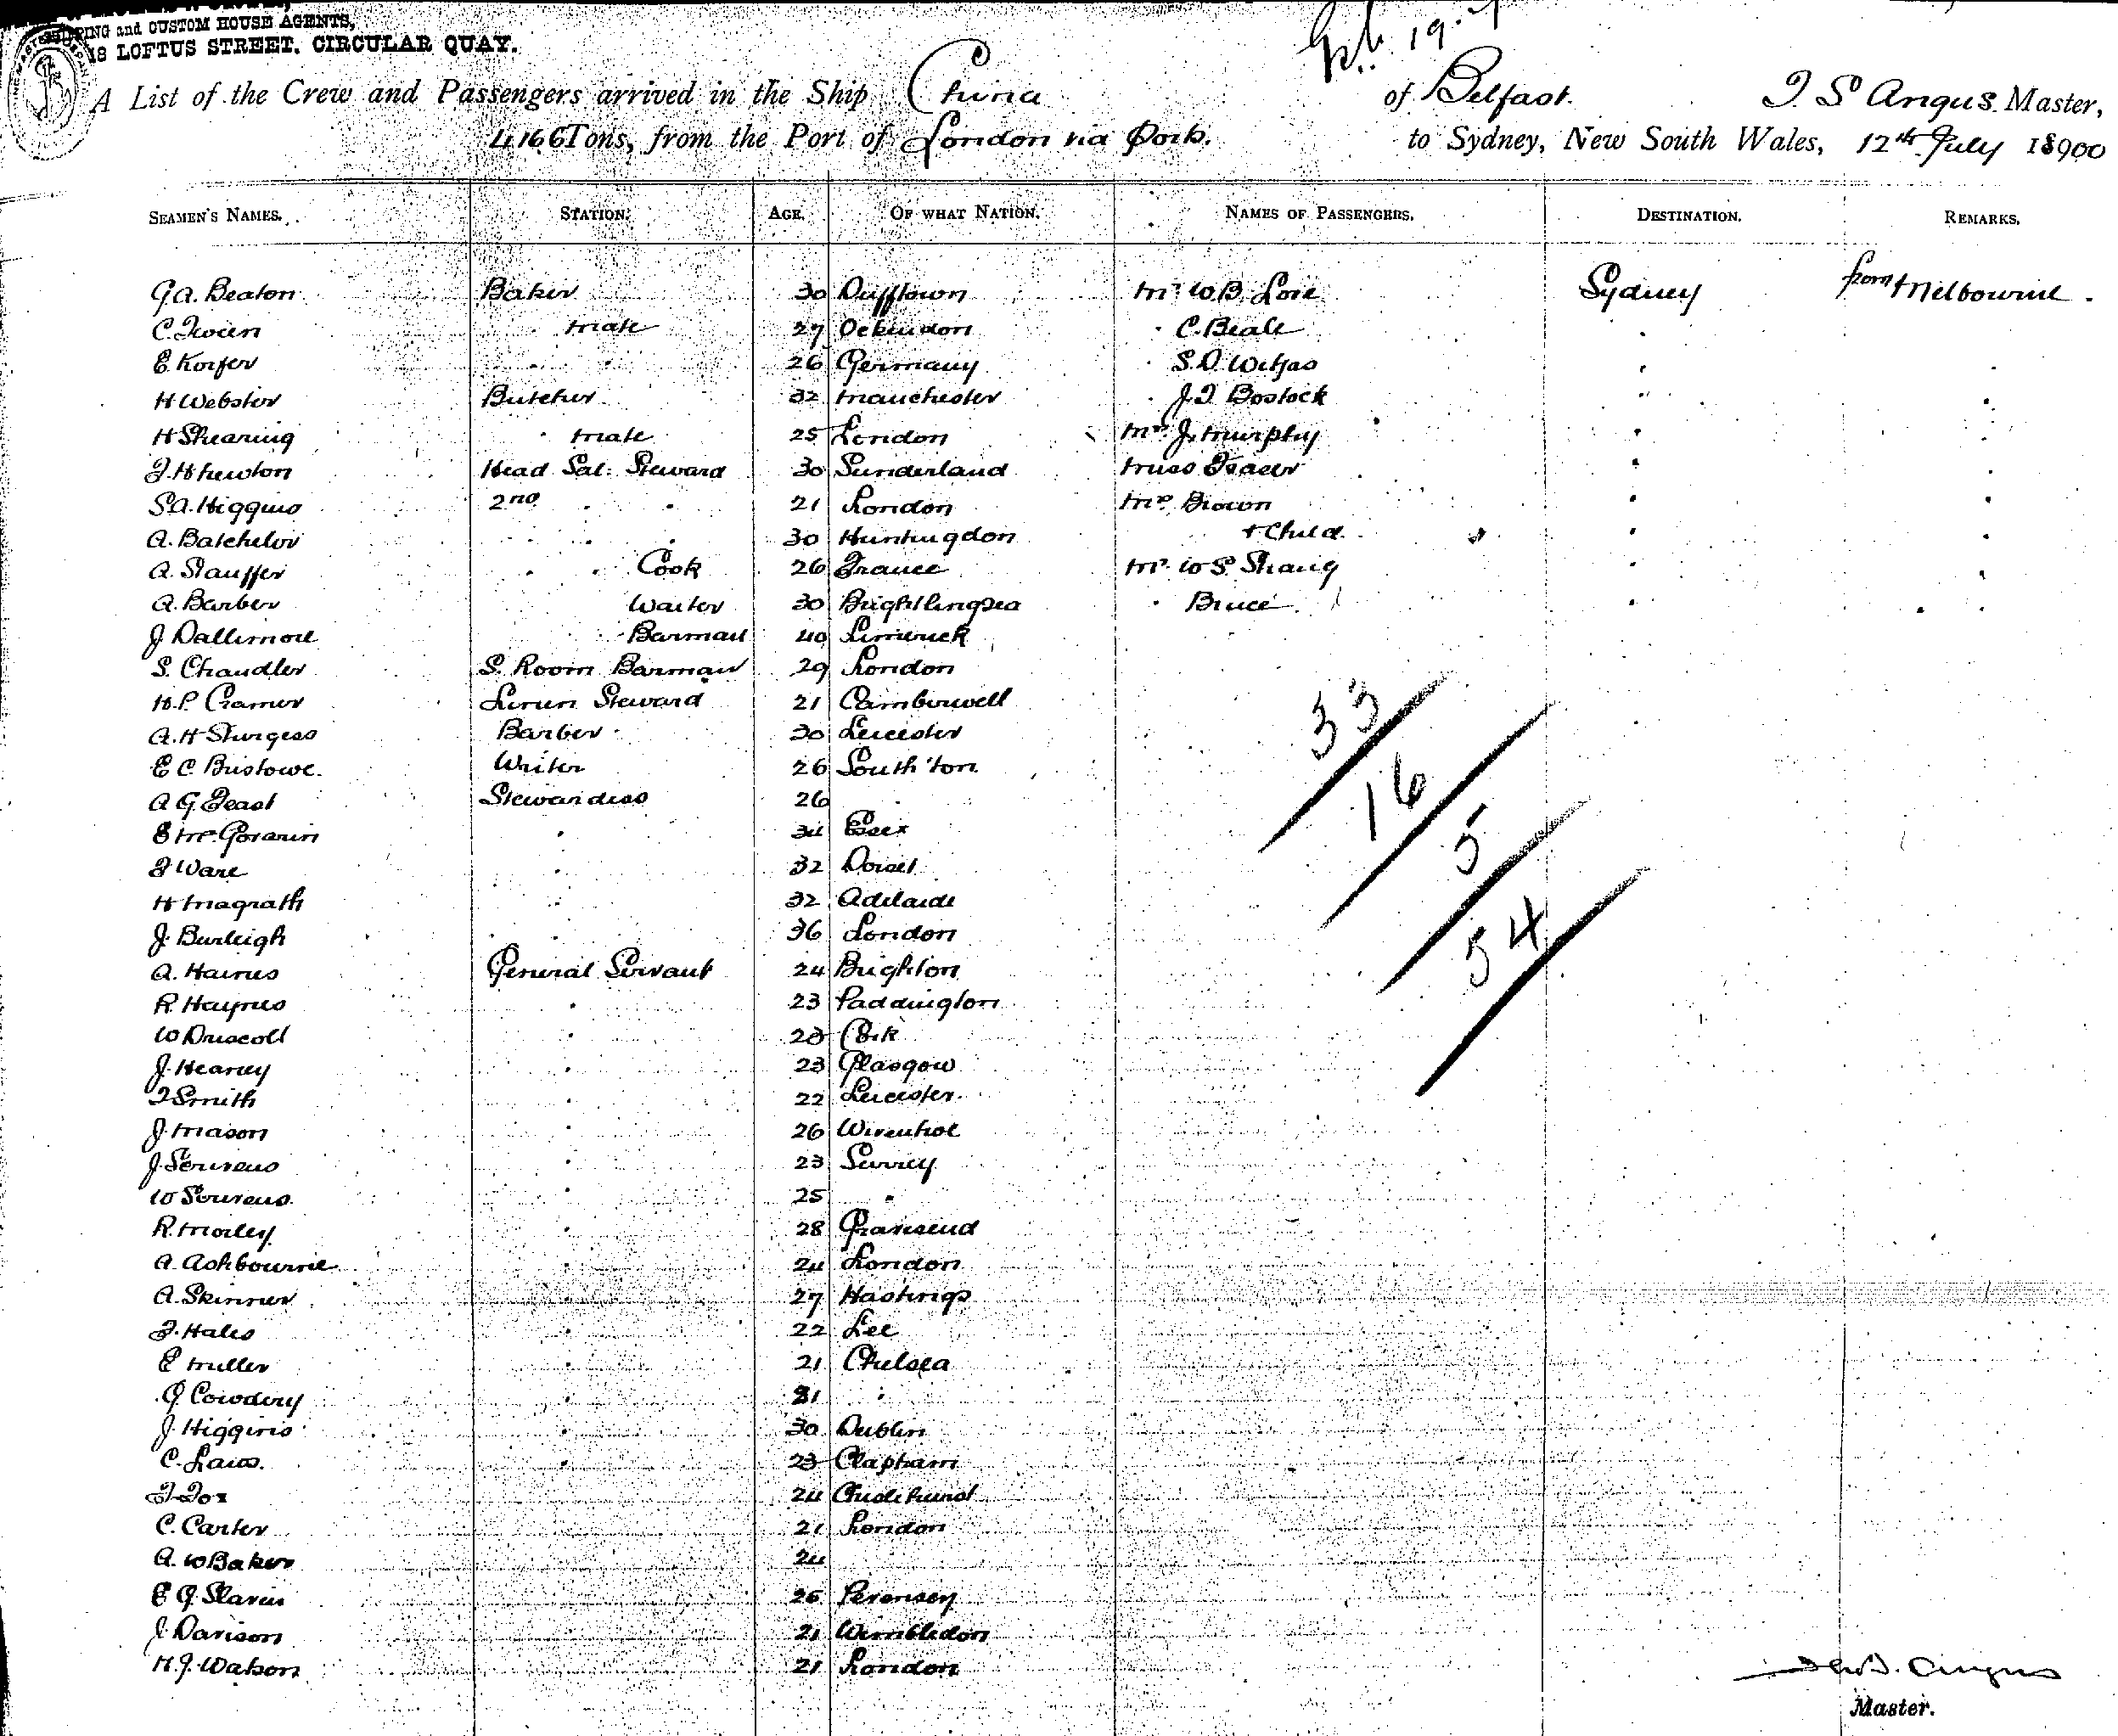 SHIPPING and CUSTOM HOUSE AGENTS,
18 LOFTUS STREET. CIRCULAR QUAY.
A List of the Crew and Passengers arrived in the Ship China of Belfast. Angus. Master,
4166 Tons, from the Port of London via Ports. to Sydney, New South Wales, 12th July 18900
SEAMEN'S NAMES. STATION. AGE. OF WHAT NATION. NAMES OF PASSENGERS. DESTINATION. REMARKS.
G.A. Beaton Baker 30 Dufftown Mr W.B. Sydney from Melbourne.
C. mate 27 Ockendon " C. Beale "
E. Korfer " " 26 Germany " S.D. " "
H Webster Butcher 32 Manchester " J.T Bostock " "
H Shearing " mate 25 London J. Murphy " "
Head Sal. Steward 30 Sunderland Miss Fraser " "
S.A. Higgins 2nd " " 21 London Mrs Brown " "
A. Batchelor " " " 30 Huntingdon + Child " " "
A. Stauffer " " Cook 26 France Mr. W S. " "
A. Barber Waiter 30 Brightlingsea " Bruce " "
J Dallimore Barman 40 Limerick
S. Chandler S. Room Barman 29 London
H.P. Cramer Linen Steward 21 Camberwell
A. H Sturgess Barber 30 Leicester
E C. Bristowe. Writer 26 South'ton
A G Feast Stewardess 26 "
" 34 Essex
F Ware " 32 Dorset
H Magrath " 32 Adelaide
J. Burleigh " 36 London
A. Haines General Servant 24 Brighton
R. Haynes " 23 Paddington
W Driscoll " 23 Cork
J. Heaney " 23 Glasgow
F Smith " 22 Leicester
J. Mason " 26 Wivenhoe
J. " 23 Surrey
W " 25 "
R. Morley " 28 Gravesend
A. Ashbourne " 24 London
A. Skinner " 27 Hastings
F. Hales " 22 Lee
E Miller " 21 Chelsea
G Cowdery " 21 "
J. Higgins " 30 Dublin
C. Laws. " 23 Clapham
F Fox 24
C. Carter 21 London
A. W Baker 24
E G. Slavin 26 Pevensey
J. Davison 21 Wimbledon
H.J. Watson 21 London
33
16
5
54
Angus
Master.